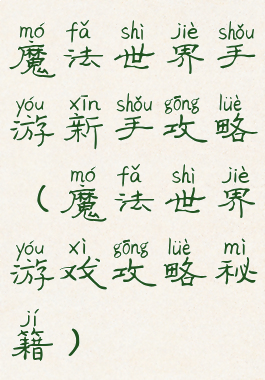 mó fǎ shì jiè shǒu
魔法世界手
yóu xīn shǒu gōng lüè
游新手攻略
mó fǎ shì jiè
（魔法世界
yóu xì gōng lüè mì
游戏攻略秘
jí
籍）